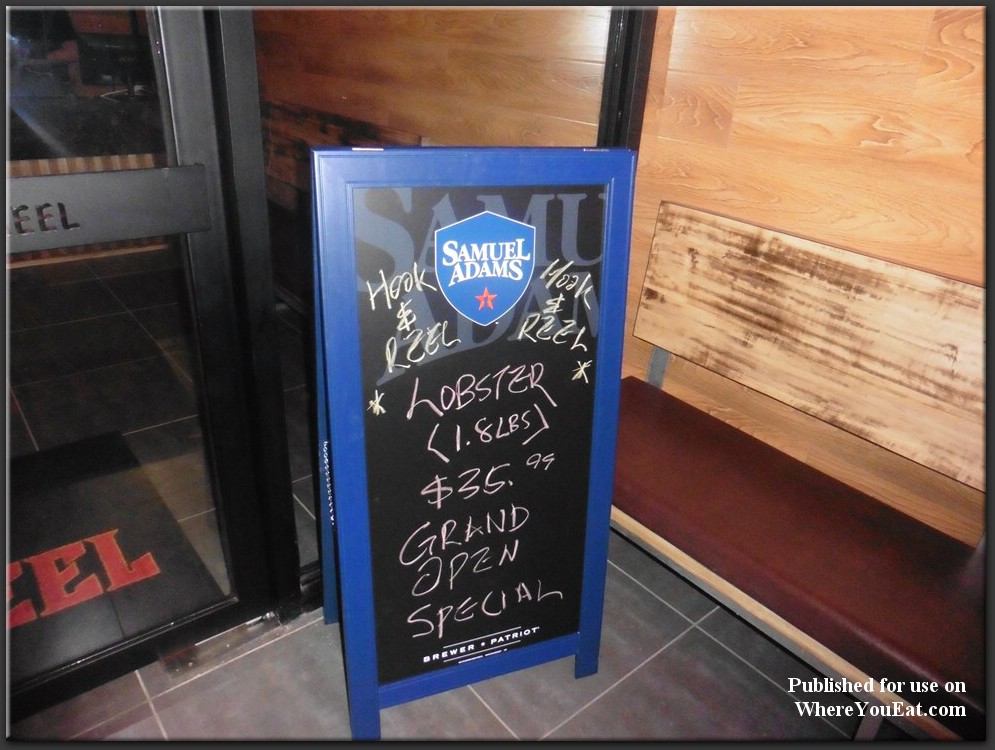 EEL
SAMU
ADAM
SAMUEL
ADAMS
HOOK
&
REEL
HOOK
&
REEL
* LOBSTER *
(1.8 LBS)
$35.99
GRAND
OPEN
SPECIAL
BREWER * PATRIOT
EEL
Published for use on
WhereYouEat.com